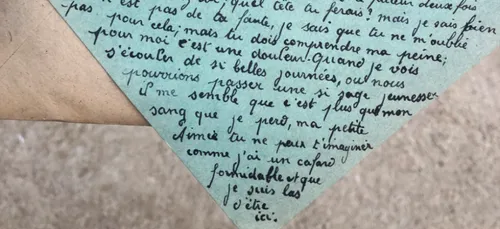 facteur deux fois
quel tête tu ferais! mais je sais bien
n'est pas de ta faute, je sais que tu ne m'oublie
pas pour cela; mais tu dois comprendre ma peine;
pour moi c'est une douleur. Quand je vois
s'écouler de si belles journées, ou nous
pourrions passer une si sage jeunesse
il me semble que c'est plus que mon
sang que je perd, ma petite
Aimée tu ne peux t'imaginer
comme j'ai un cafard
formidable et que
je suis las
d'être
ici.